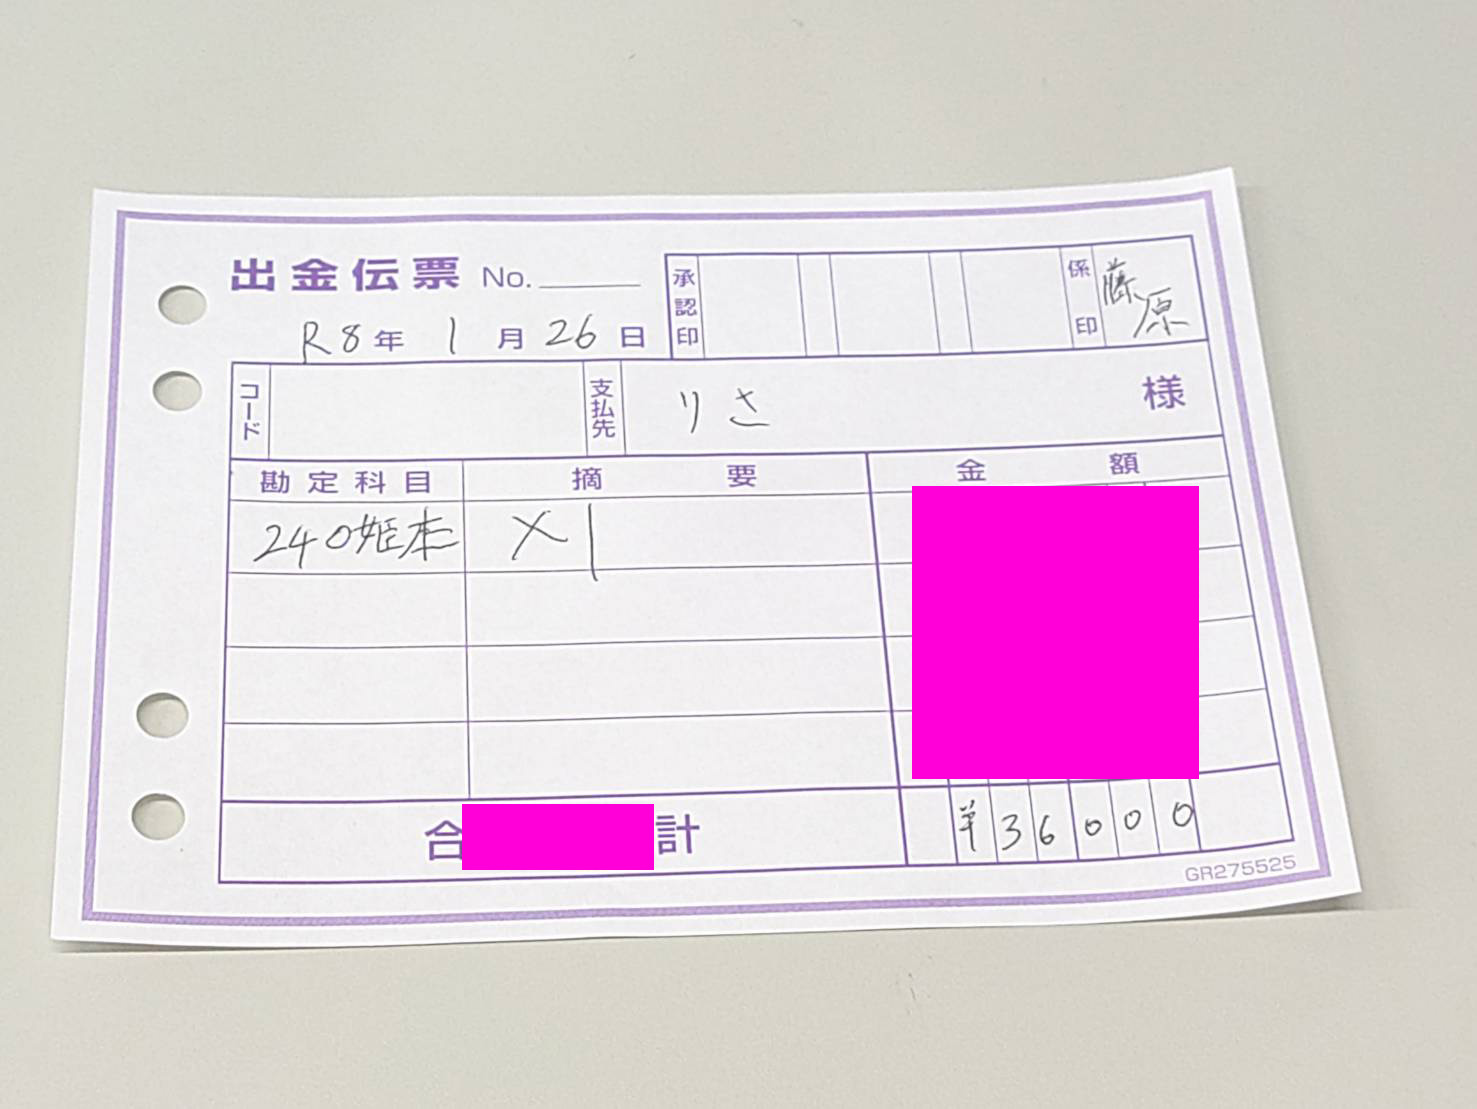 出金伝票 No.
承認印
係印 藤原
R8年 1月 26日
コード
支払先 りさ 様
勘定科目 摘要 金額
240姫本 ×1
合計 ¥36000
GR275525